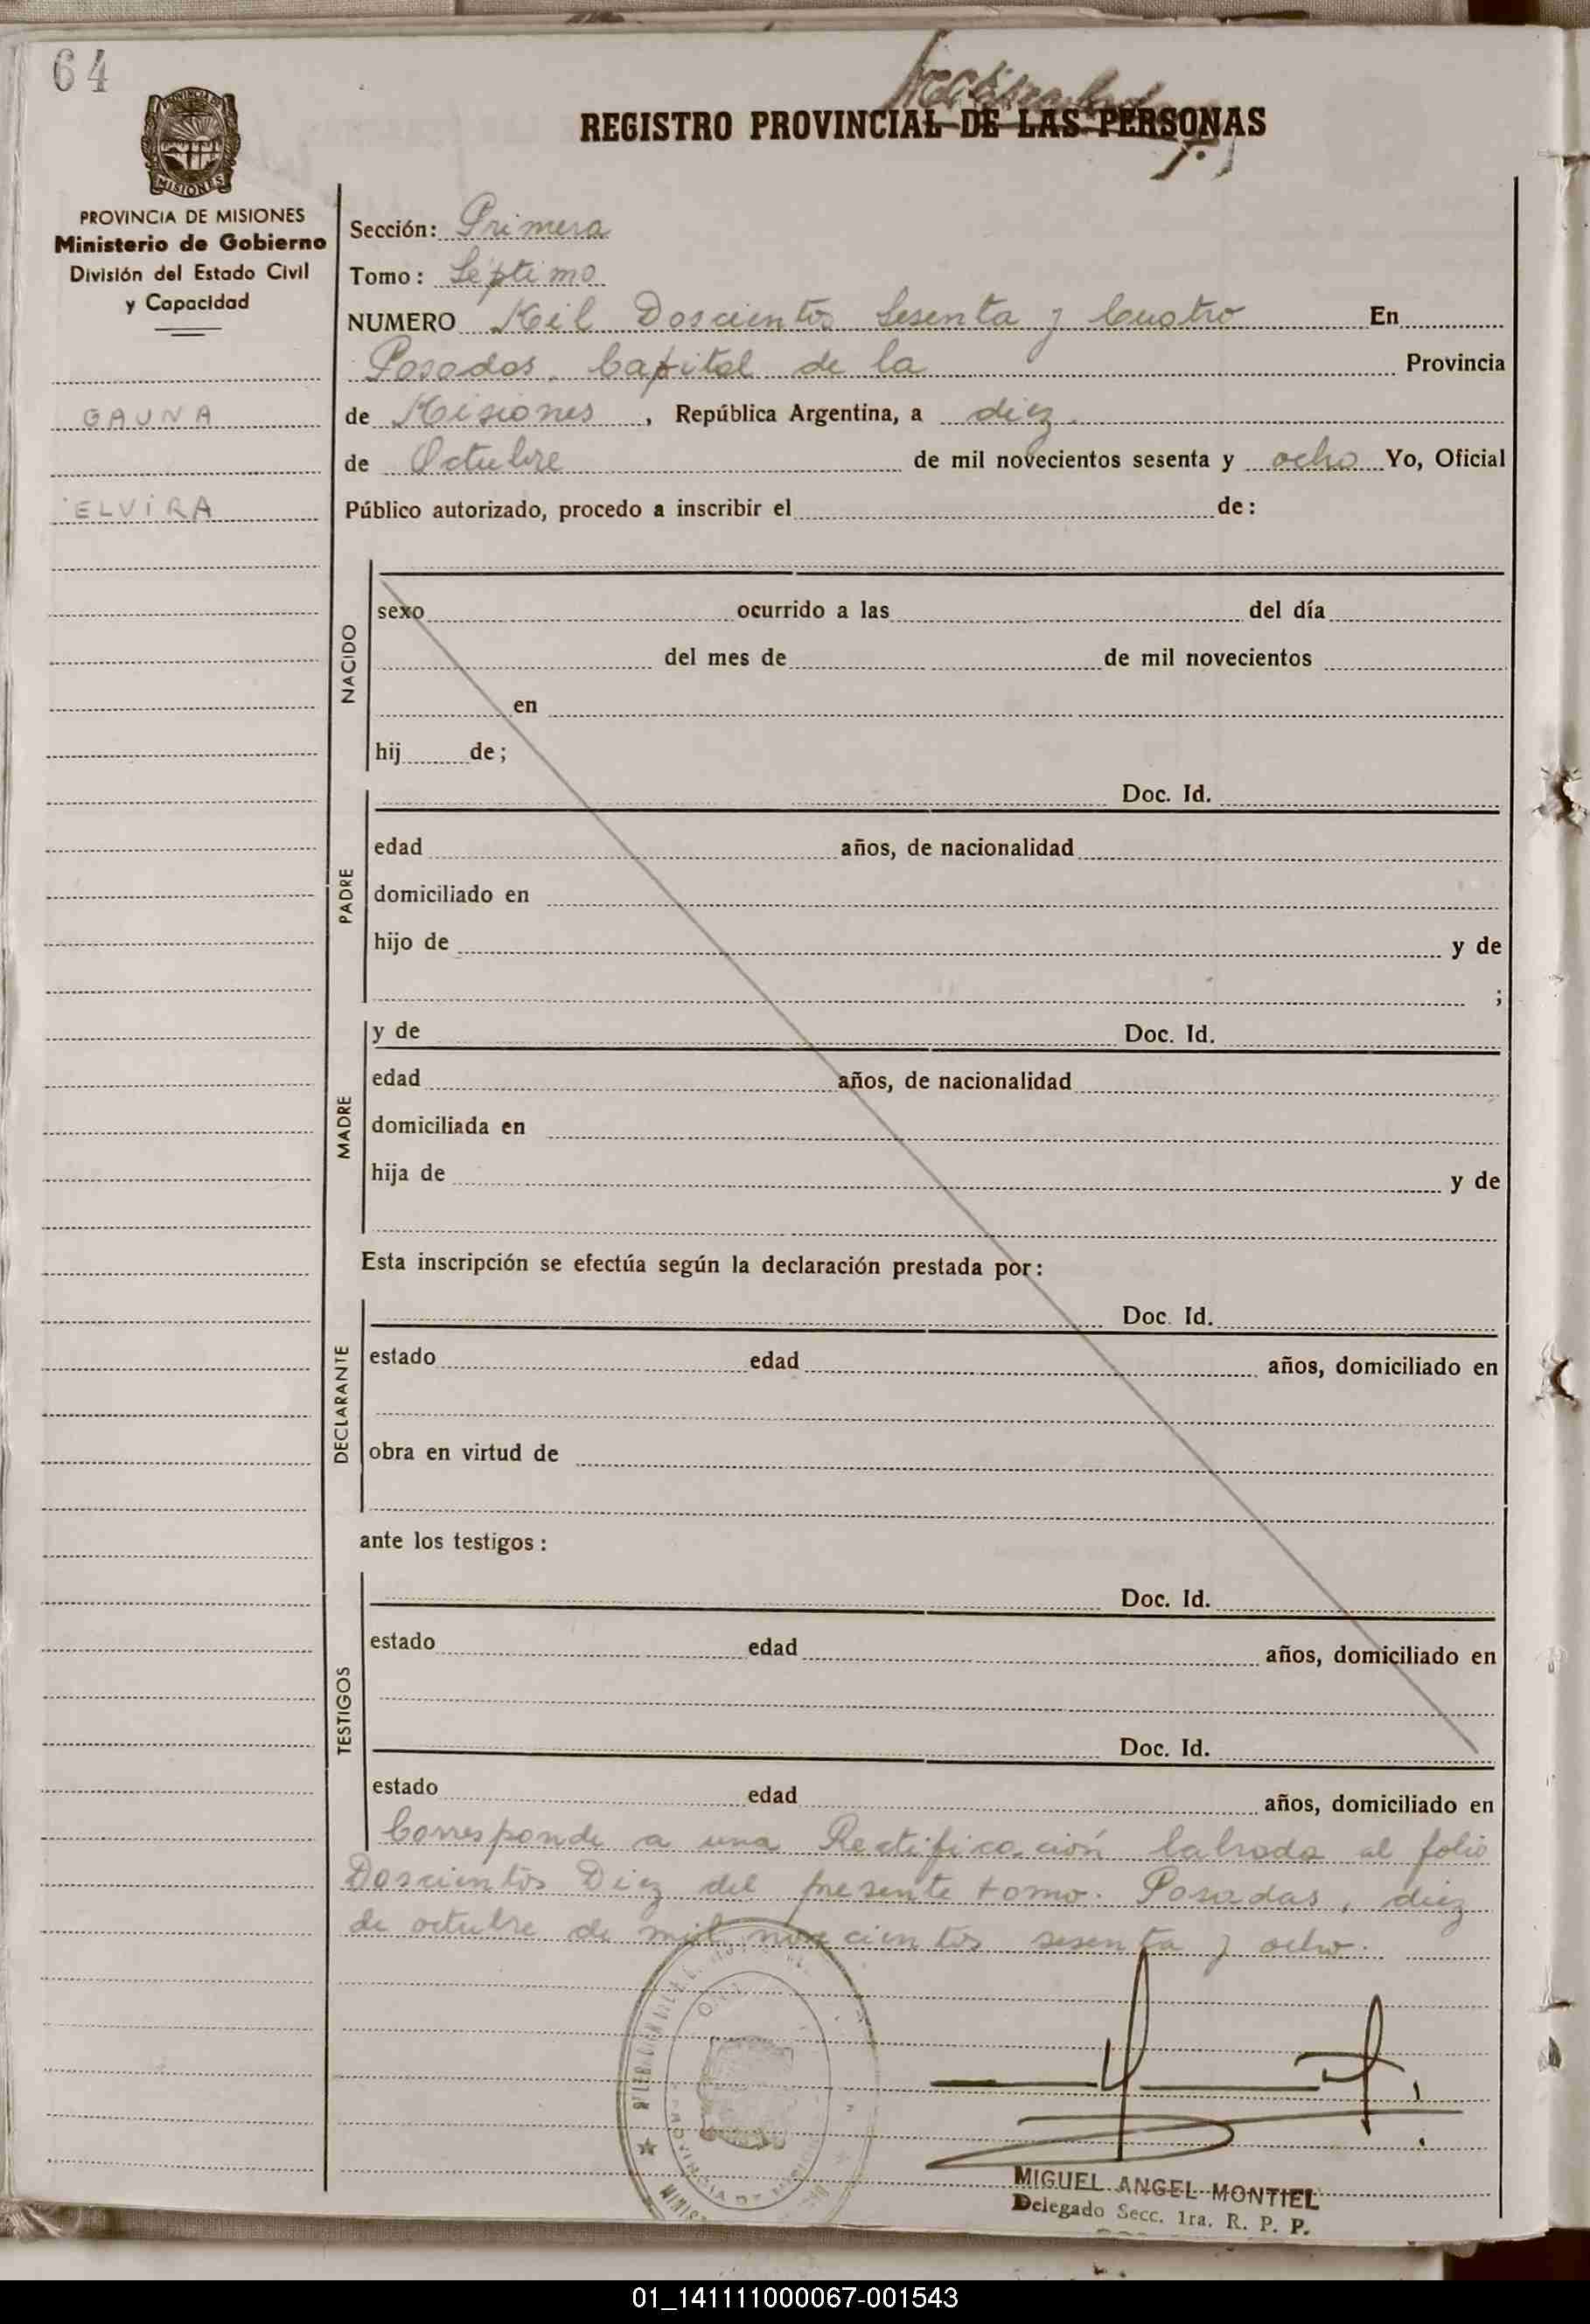 64
PROVINCIA DE MISIONES
Ministerio de Gobierno
División del Estado Civil
y Capacidad
GAUNA
ELVIRA
REGISTRO PROVINCIAL DE LAS PERSONAS
Sección: Primera
Tomo: Séptimo
NUMERO Mil Doscientos Sesenta y Cuatro En
Posadas. Capital de la Provincia
de Misiones, República Argentina, a diez
de Octubre de mil novecientos sesenta y ocho Yo, Oficial
Público autorizado, procedo a inscribir el de:
NACIDO
sexo ocurrido a las del día
del mes de de mil novecientos
en
hij de;
PADRE
Doc. Id.
edad años, de nacionalidad
domiciliado en
hijo de y de
;
MADRE
y de Doc. Id.
edad años, de nacionalidad
domiciliada en
hija de y de
Esta inscripción se efectúa según la declaración prestada por:
DECLARANTE
Doc. Id.
estado edad años, domiciliado en
obra en virtud de
ante los testigos:
TESTIGOS
Doc. Id.
estado edad años, domiciliado en
Doc. Id.
estado edad años, domiciliado en
Corresponde a una Rectificación labrada al folio
Doscientos Diez del presente tomo. Posadas, diez
de octubre de mil novecientos sesenta y ocho.
PROVINCIA DE MISIONES
MIGUEL ANGEL MONTIEL
Delegado Secc. 1ra. R. P. P.
01_141111000067-001543